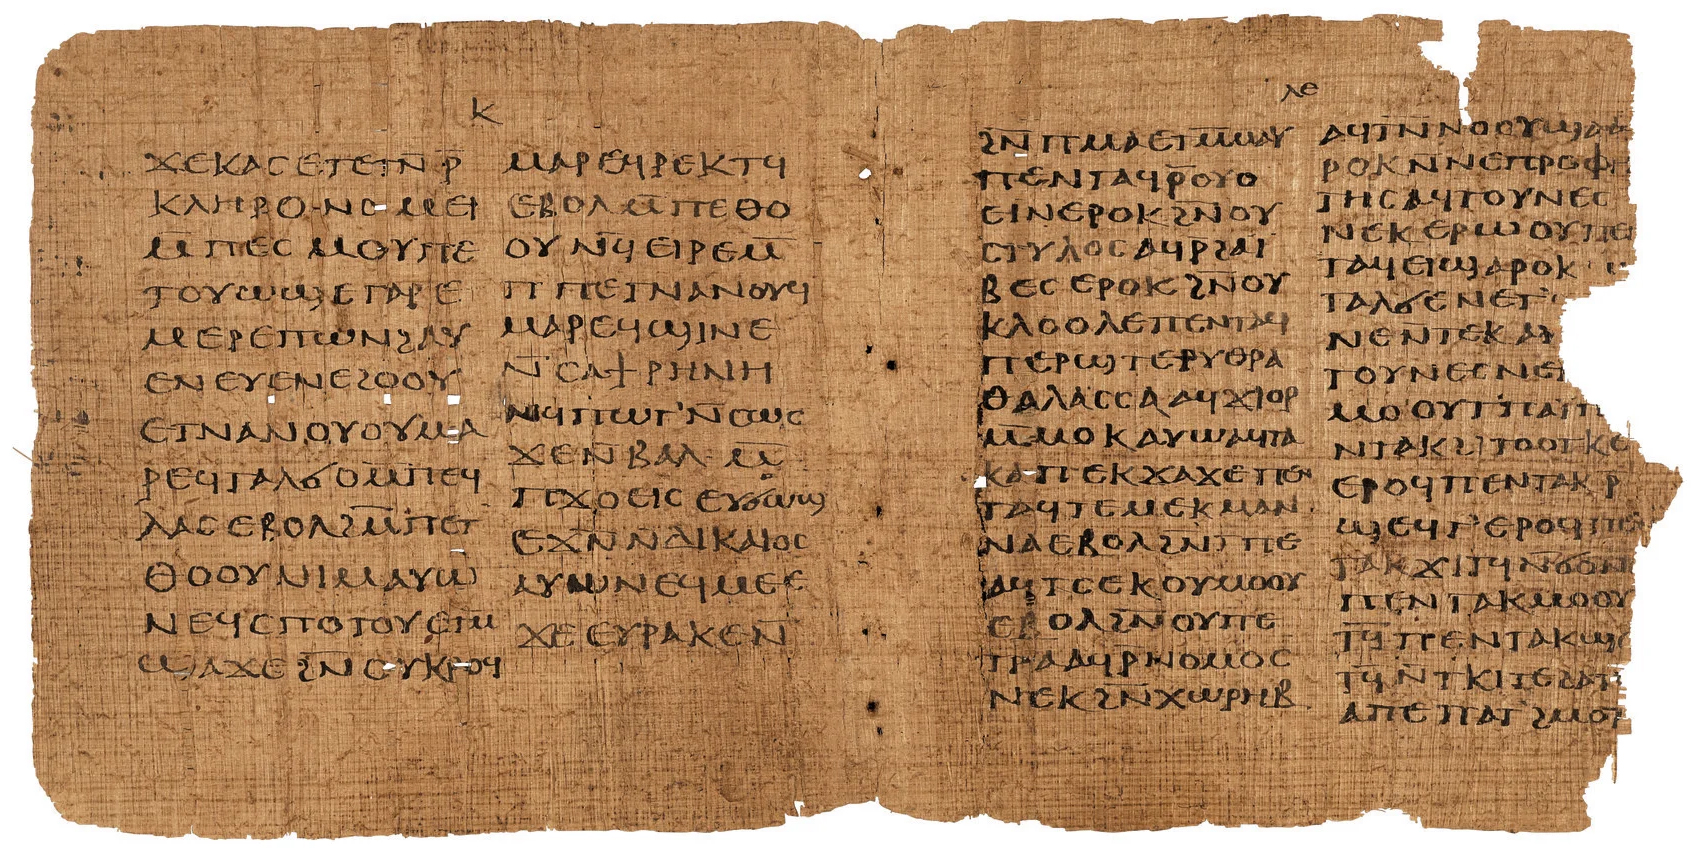 ⲕ
ϫⲉⲕⲁⲥ ⲉⲧⲉⲧⲛ̅ⲣ̅
ⲕⲗⲏⲣⲟⲛⲟⲙⲉⲓ
ⲙ̅ⲡⲉⲥⲙⲟⲩ ⲡⲉ
ⲧⲟⲩⲱϣⲉ ⲅⲁⲣ ⲉ
ⲙⲉⲣⲉ ⲡⲱⲛϩ ⲁⲩ
ⲉⲛⲉⲩ ⲉⲛⲉϩⲟⲟⲩ
ⲉⲧⲛⲁⲛⲟⲩⲟⲩ ⲙⲁ
ⲣⲉϥⲧⲁⲗϭⲟ ⲙ̅ⲡⲉϥ
ⲗⲁⲥ ⲉⲃⲟⲗ ϩⲙ̅ ⲡⲉⲧ
ⲑⲟⲟⲩ ⲛⲓⲙ ⲁⲩⲱ
ⲛⲉϥⲥⲡⲟⲧⲟⲩ ⲉⲧⲙ̅
ϣⲁϫⲉ ϩⲛ̅ ⲟⲩⲕⲣⲟϥ
ⲙⲁⲣⲉϥⲣⲉⲕⲧϥ
ⲉⲃⲟⲗ ⲙ̅ⲡⲉⲑⲟ
ⲟⲩ ⲛϥ̅ⲉⲓⲣⲉ ⲙ̅
ⲡⲡⲉⲧⲛⲁⲛⲟⲩϥ
ⲙⲁⲣⲉϥϣⲓⲛⲉ
ⲛ̅ⲥⲁ ϯⲣⲏⲛⲏ
ⲛϥ̅ⲡⲱⲧ ⲛ̅ⲥⲱⲥ
ϫⲉ ⲛ̅ⲃⲁⲗ ⲙ̅
ⲡϫⲟⲉⲓⲥ ⲉⲩϭⲱϣ
ⲉϫⲛ̅ ⲛ̅ⲇⲓⲕⲁⲓⲟⲥ
ⲁⲩⲱ ⲛⲉϥⲙⲉⲉ
ϫⲉ ⲉⲩⲣⲁⲕⲉ ⲛ̅
ⲗⲉ
ϩⲛ̅ ⲡⲙⲁ ⲉⲧⲙ̅ⲙⲁⲩ
ⲡⲉⲛⲧⲁϥⲣ̅ⲟⲩⲟ
ⲉⲓⲛ ⲉⲣⲟⲕ ϩⲛ̅ ⲟⲩ
ⲥⲧⲩⲗⲟⲥ ⲁϥⲣϩⲁⲓ
ⲃⲉⲥ ⲉⲣⲟⲕ ϩⲛ̅ ⲟⲩ
ⲕⲗⲟⲟⲗⲉ ⲡⲉⲛⲧⲁϥ
ⲡⲉⲣϣ ⲧⲉⲣⲩⲑⲣⲁ
ⲑⲁⲗⲁⲥⲥⲁ ⲁϥϫⲓⲟⲣ
ⲙ̅ⲙⲟⲕ ⲁⲩⲱ ⲁϥⲧⲁ
ⲕⲁ ⲡⲉⲕϫⲁϫⲉ ⲡⲉⲛ
ⲧⲁϥϯⲉⲙⲉⲕ ⲙⲁⲛ
ⲛⲁ ⲉⲃⲟⲗ ϩⲛ̅ ⲧⲡⲉ
ⲁϥⲧⲥⲉⲕ ⲟⲩⲙⲟⲟⲩ
ⲉⲃⲟⲗ ϩⲛ̅ ⲟⲩⲡⲉ
ⲧⲣⲁ ⲁϥⲣ̅ⲛⲟⲙⲟⲥ
ⲛⲉⲕ ϩⲛ̅ ⲭⲱⲣⲏⲃ
ⲁϥⲧⲛ̅ⲛⲟⲟⲩ ϣⲁ
ⲣⲟⲕ ⲛ̅ⲛⲉⲡⲣⲟⲫⲏ
ⲧⲏⲥ ⲁϥⲧⲟⲩⲛⲉⲥ
ⲛⲉⲕⲉⲣⲱⲟⲩ ⲡⲉ
ⲧⲁϥⲉⲓ ϣⲁⲣⲟⲕ
ⲧⲁⲗϭⲉ ⲛⲉⲧ
ⲛⲉ ⲛ̅ⲧⲉⲕ ⲁϥ
ⲧⲟⲩⲛⲉⲥ ⲛⲉ
ⲙⲟⲟⲩⲧ ⲡⲁⲓ ⲡ
ⲛⲧⲁⲕϩⲓⲧⲟⲟⲧⲕ ⲉ
ⲉⲣⲟϥ ⲡⲉⲛⲧⲁⲕⲣ̅
ϣⲉϥⲧ ⲉⲣⲟϥ ⲡⲉ
ⲧⲁⲕϫⲓⲧϥ ⲛ̅ϭⲟⲛ
ⲡⲉⲛⲧⲁⲕⲙⲟⲟⲩ
ⲧϥ̅ ⲡⲉⲛⲧⲁⲕϣ
ⲧϥ̅ ⲛ̅ⲧⲕⲓⲧⲉ ϩⲁ
ⲁⲡⲉ ⲡⲁⲧϩⲙⲟⲧ